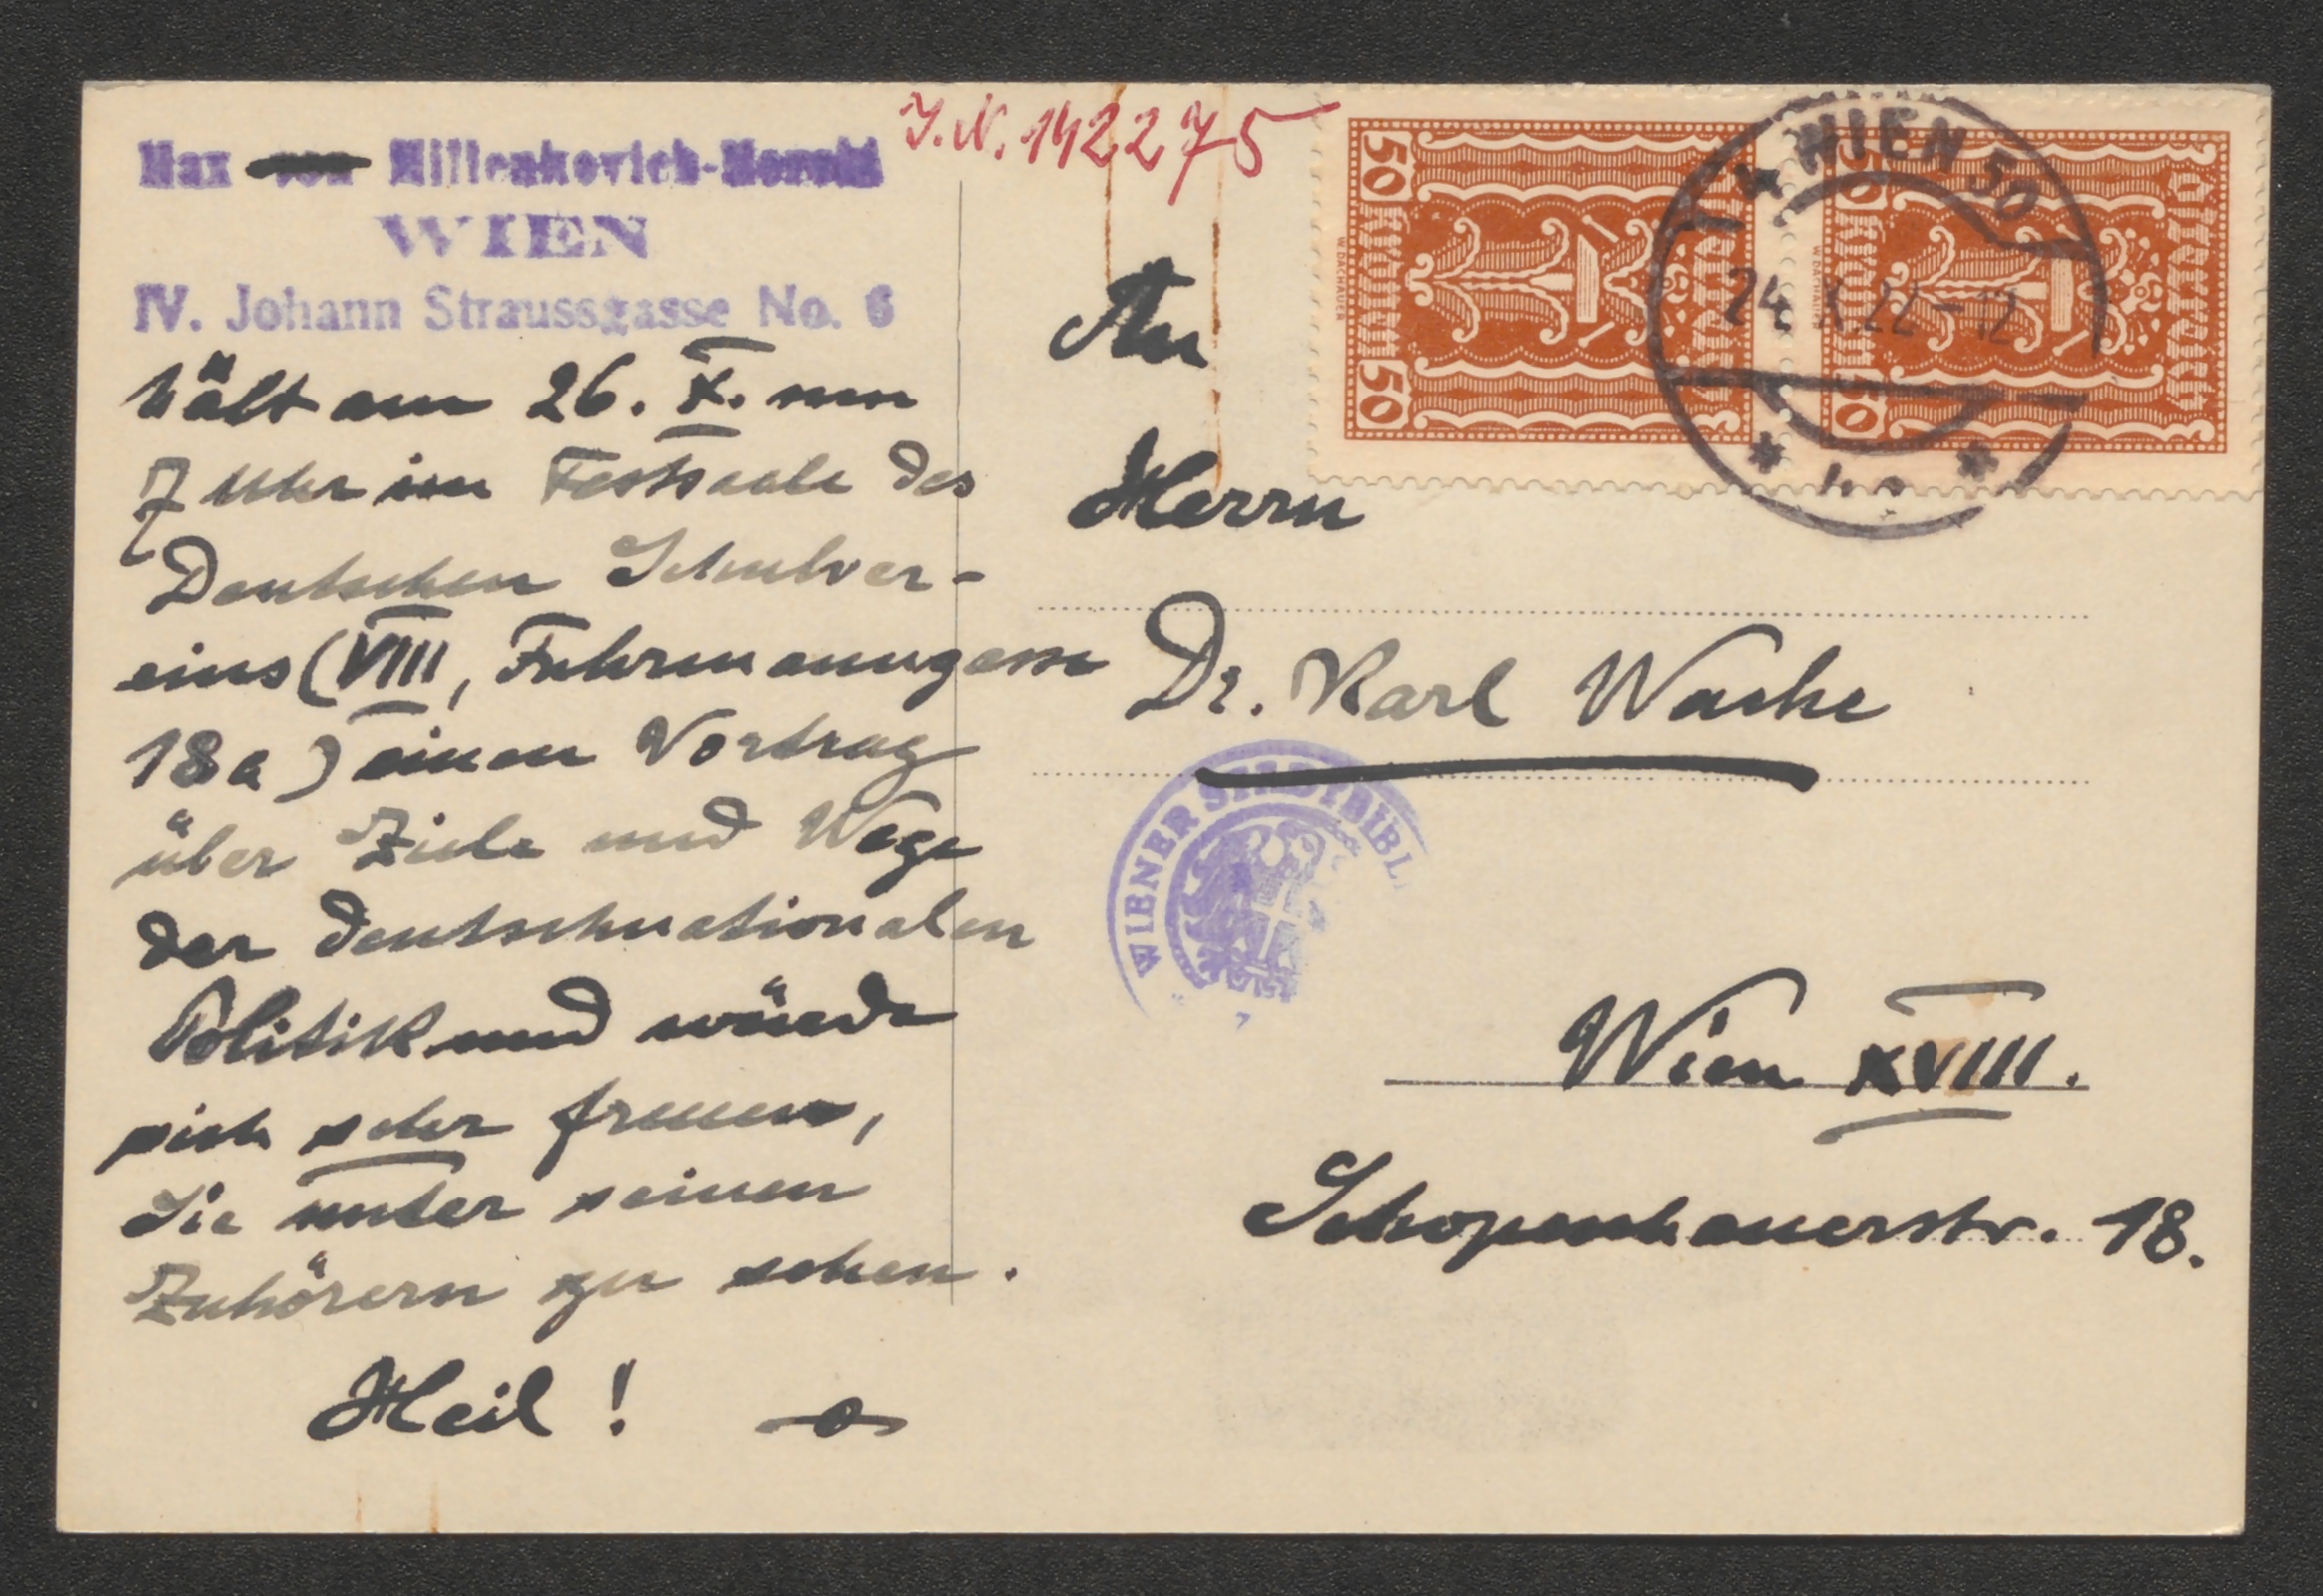 Max von Millenkovich-Morold
WIEN
IV. Johann Straussgasse No. 6
hält am 26. X. um
7 Uhr im Festsaale des
Deutschen Schulver-
eins (VIII, Fuhrmanngasse
18a) einen Vortrag
über Ziele und Wege
der deutschnationalen
Politik und würde
sich sehr freuen,
Sie unter seinen
Zuhörern zu sehen.
Heil!
J.N. 142275
50 KRONEN 50
ÖSTERREICH
W. DACHAUER
50 KRONEN 50
ÖSTERREICH
W. DACHAUER
WIEN 50
24. X. 22 - 12
An
Herrn
Dr. Karl Wache
WIENER STADTBIBL
Wien XVIII.
Schopenhauerstr. 18.